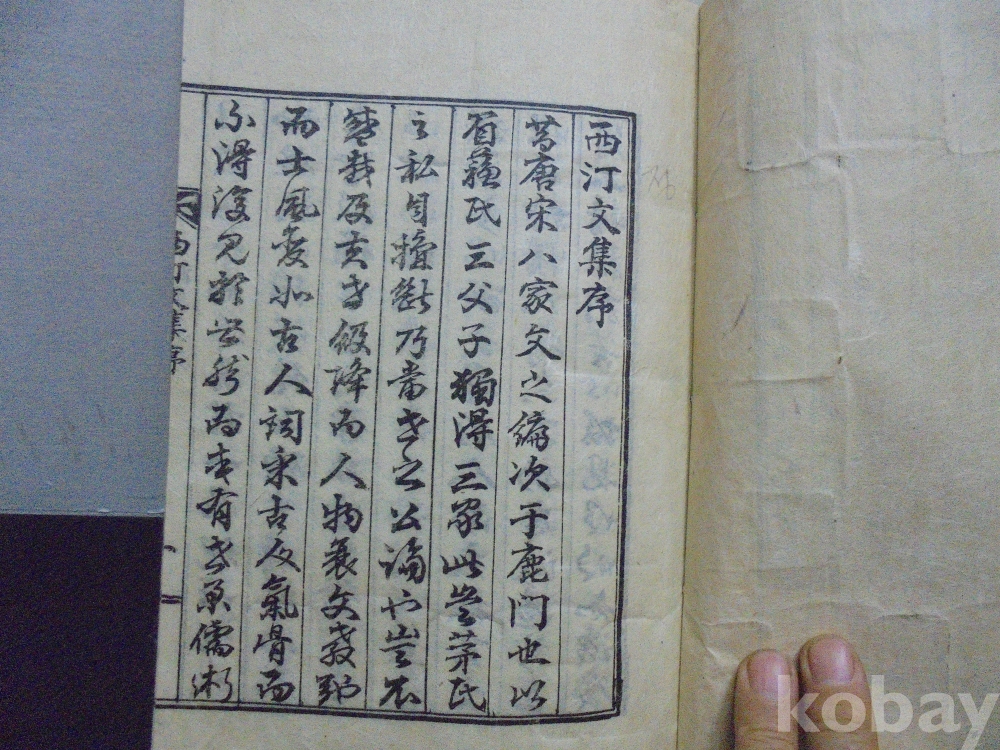 西汀文集序
昔唐宋八家文之編次于鹿門也以
眉蘇氏三父子獨得三家此豈茅氏
之私自擅斷乃當世之公論也豈不
盛哉及夫世級降而人物衰文敎弛
而士風變古人詞古氣骨而
不得復見於世然而有世業儒術
西汀文集序
一
kobay